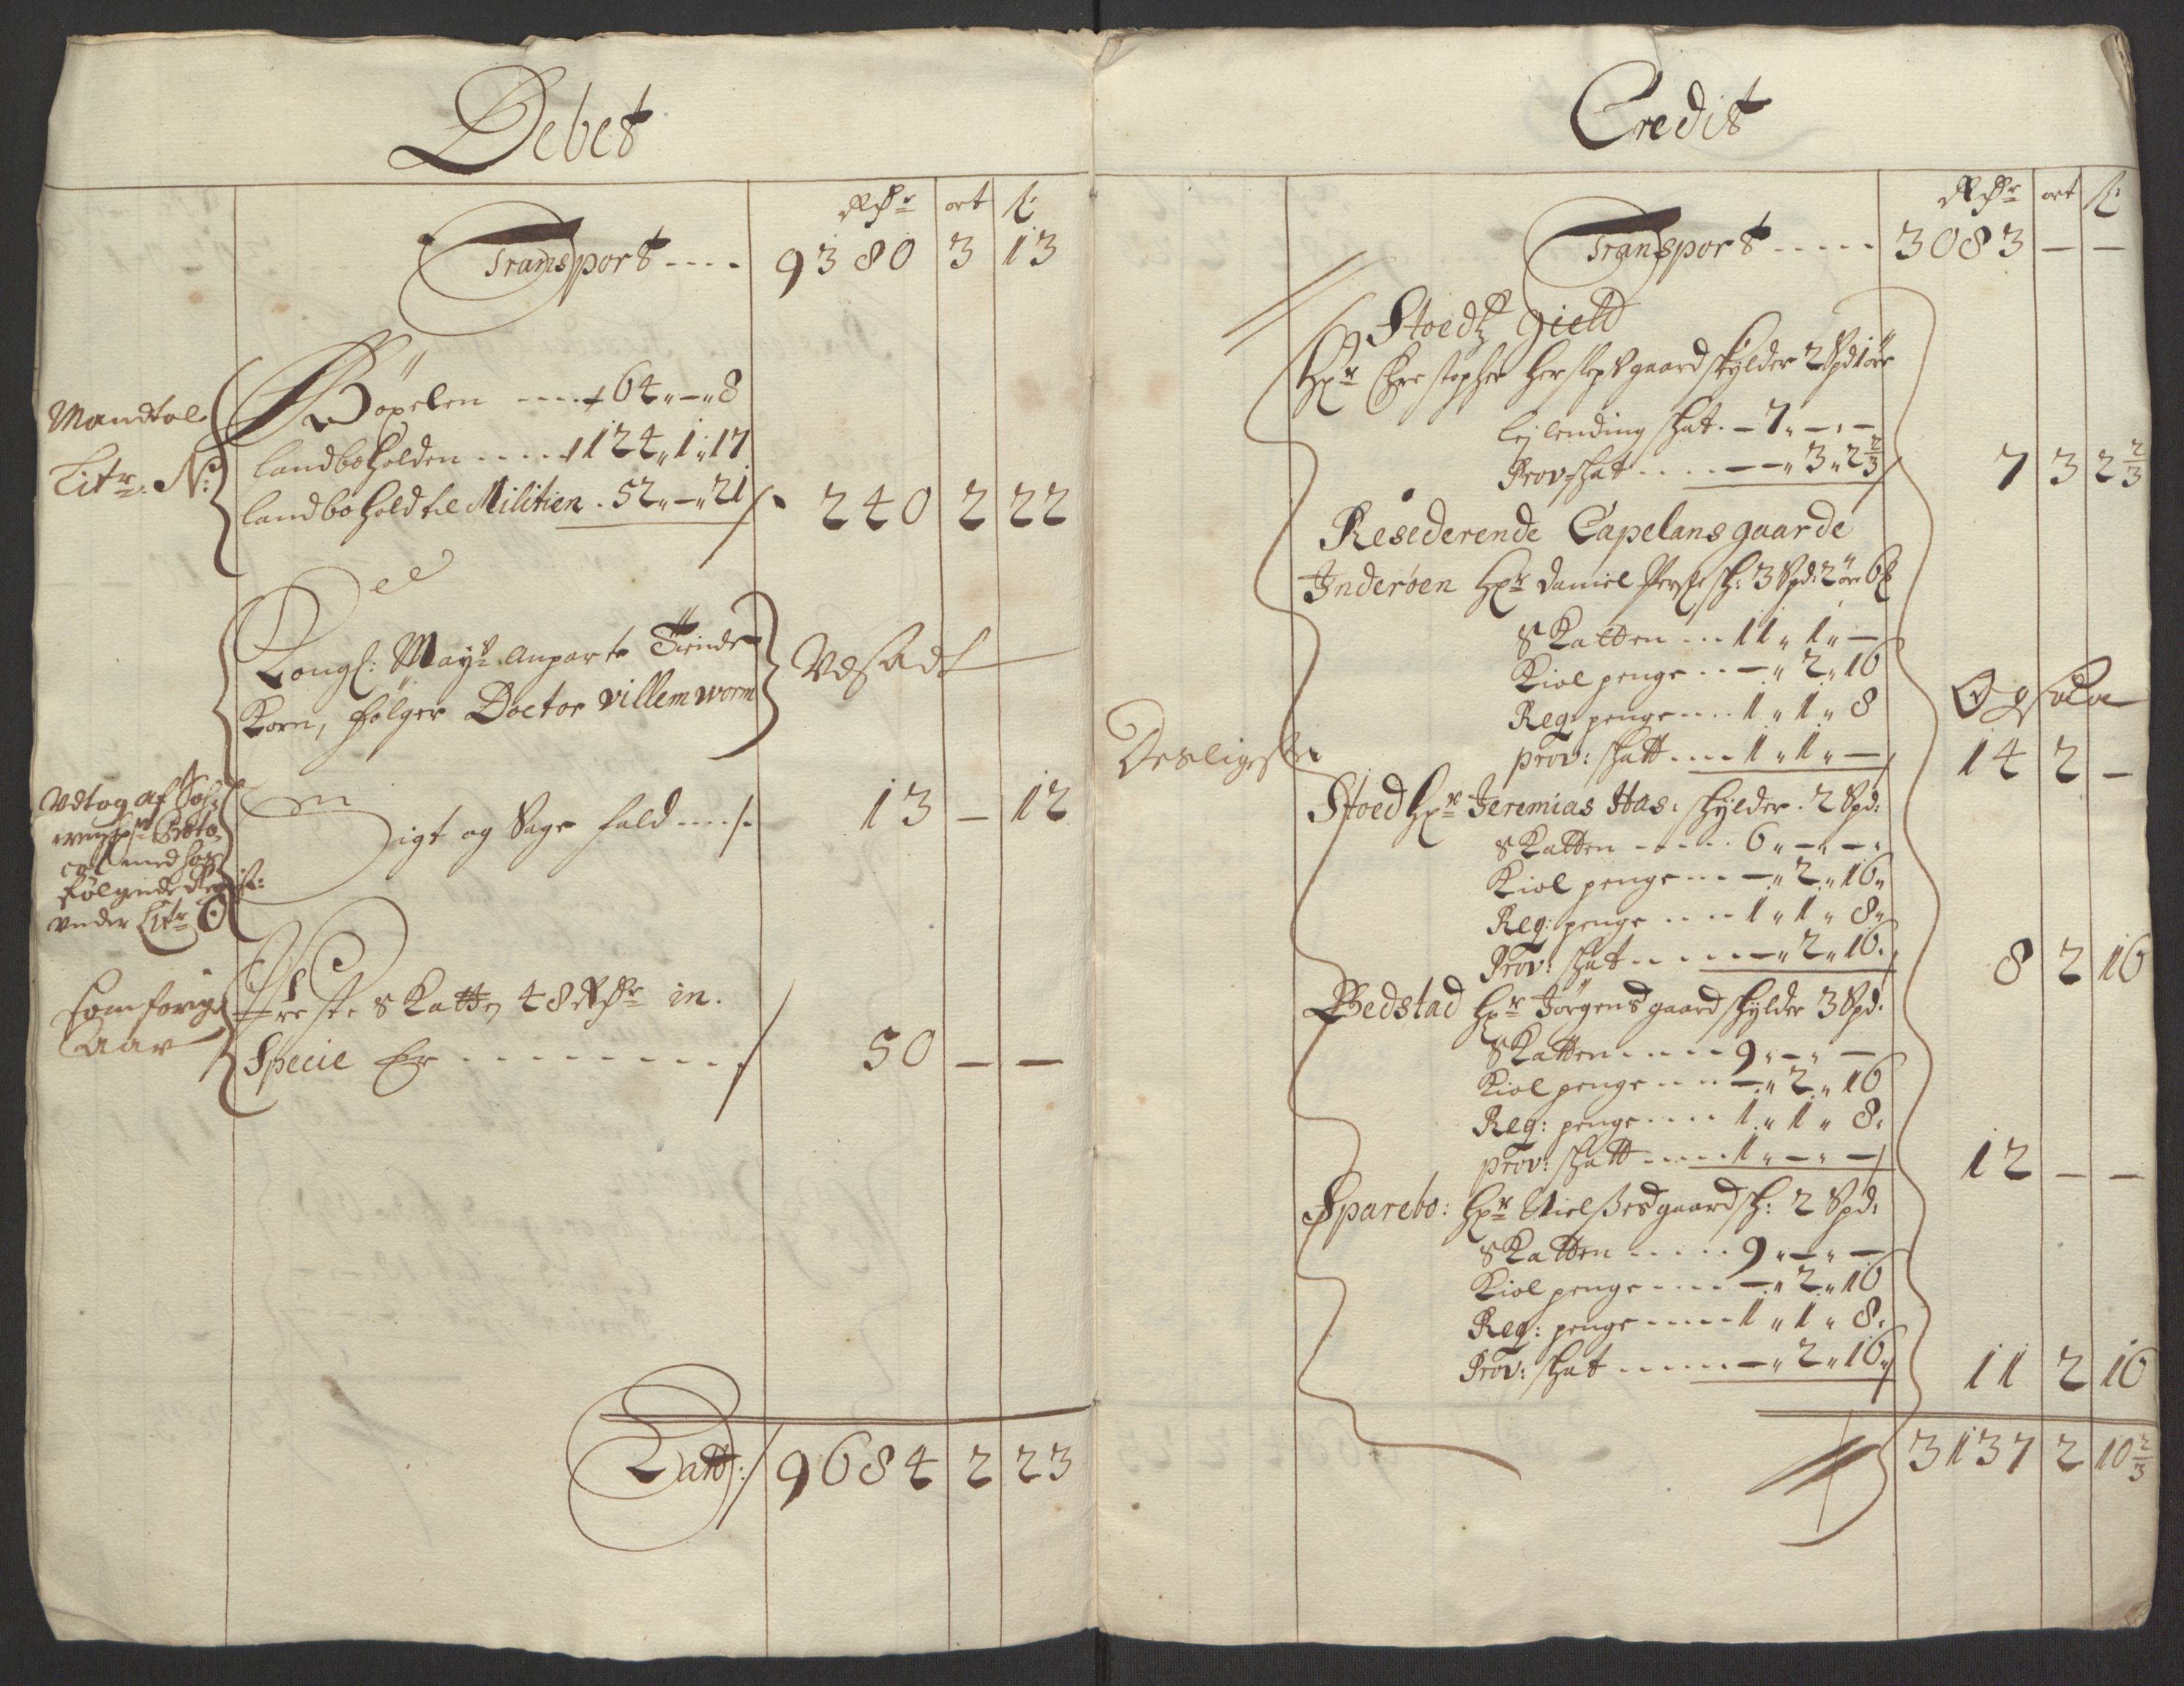 Debet
Rdr ort ß
Transport ---- 9380 3 13
Mandtal
Litr. N:
Böxelen ---- 64 „ — „ 8
landboholden ---- 124 „ 1 „ 17
landbohold til Militien . 52 „ — „ 21 240 2 22
Kongl: Mayts anparte Tiende
Korn, følger Doctor Villem Worm
Vdsadt
Vdtog af
med
følgende
vnder Litr O
Sigt og Sage fald ---- 13 — 12
som forige
Aar
Skatten 48 Rdr in
Specie Er -------- 50 — —
Latt: 9684 2 23
Credit
Rdr ort ß
Transport ----- 3083 — —
Stoedtz gield
Hr Christopher Herslepsgaard skylder 2 Spd 1 øre
lejlending skat . — 7 „ — „ —
Prov skat .... — „ 3 „ 2 2/3 7 3 2 2/3
Resederende Capelans gaarde
Inderøen Hr Daniel sk: 3 Spd: 2 øre 6
Skatten ... 11 „ 1 „ —
Kiol penge ... — „ 2 „ 16
Reg: penge .... 1 „ 1 „ 8
Desligeste
prov: skatt .... 1 „ 1 „ — 14 2 —
Stoed Hr Jeremias Has: skylder . 2 Spd:
Skatten ----- 6 „ — „ — „
Kiol penge ... — „ 2 „ 16 „
Reg: penge .... 1 „ 1 „ 8 „
Prov: skat ..... — „ 2 „ 16 . 8 2 16
Bedstad Hr Jørgens gaard skylder 3 Spd:
Skatten ..... 9 „ — „ —
Kiol penge .... — „ 2 „ 16
Reg: penge .... 1 „ 1 „ 8 „
prov: skatt ..... 1 „ — „ — 12 — —
Sparebo: Hr Nielses gaard sk: 2 Spd:
Skatten ..... 9 „ — „ —
Kiol penge .... — „ 2 „ 16
Reg: penge ----- 1 „ 1 „ 8 „
Prov: skat ...... — „ 2 „ 16 „ 11 2 16
3137 2 10 2/3